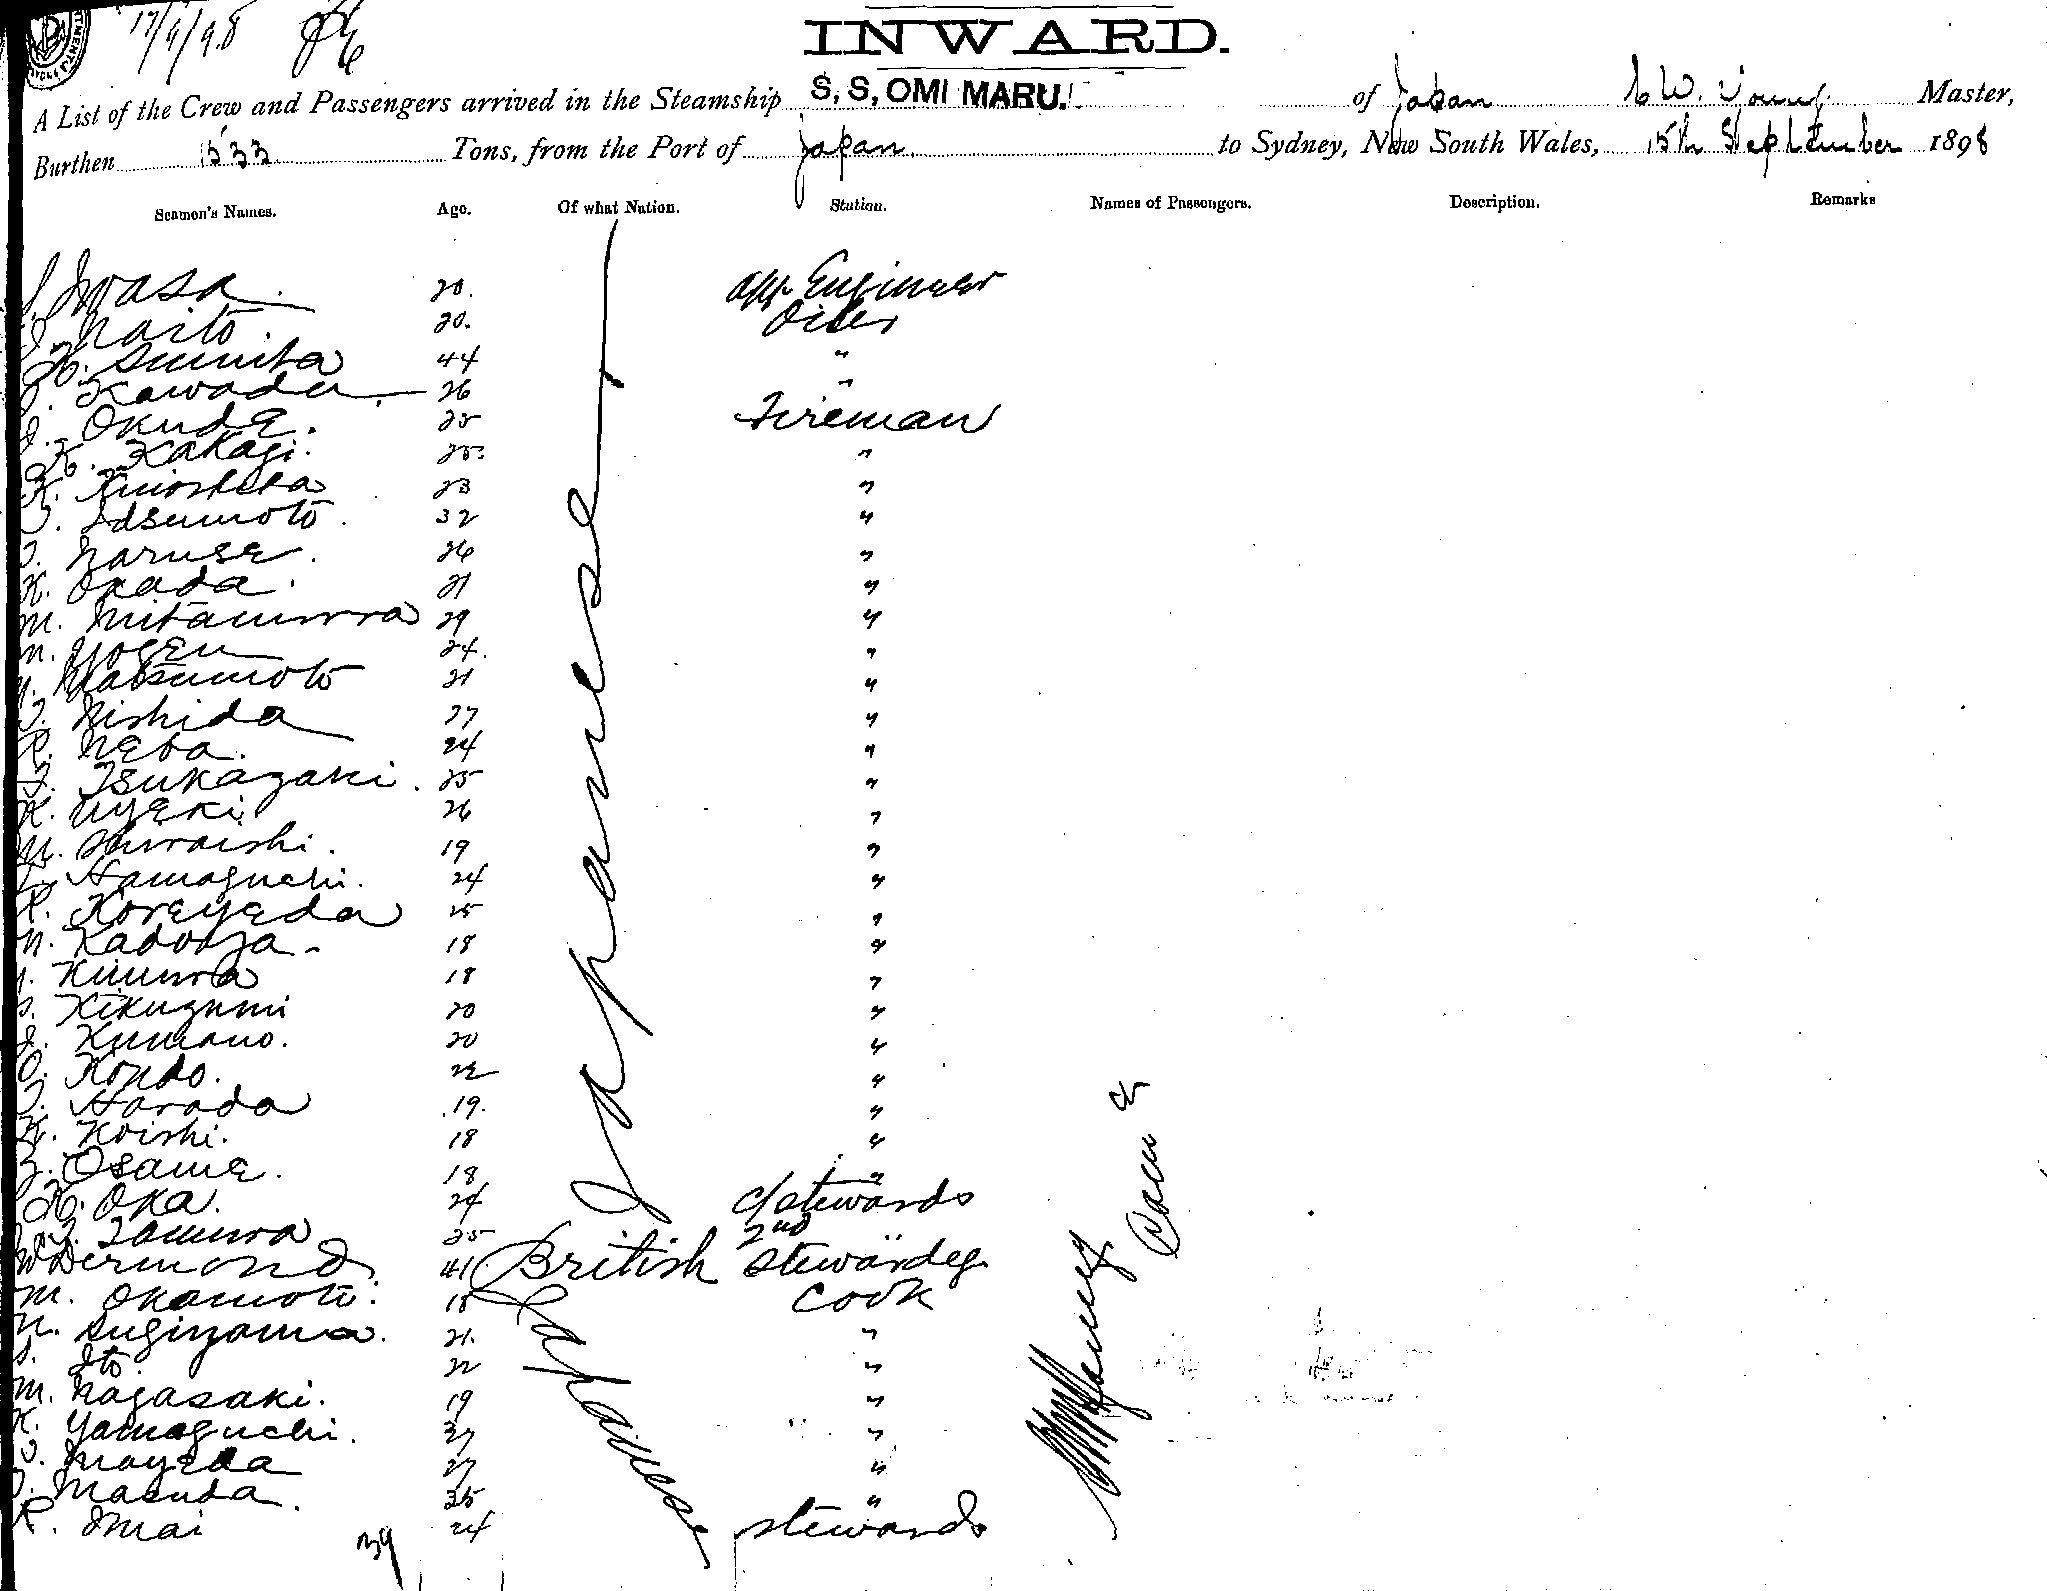 17/9/98
INWARD.
A List of the Crew and Passengers arrived in the Steamship S, S, OMI MARU. of Japan C W. Young Master,
Burthen 1533 Tons, from the Port of Japan. to Sydney, New South Wales, 15th September 1898
Seamen's Names. Age. Of what Nation. Station. Names of Passengers. Description. Remarks
Iwasa 20. App Engineer
Naito. 20. Oiler
H. Sumita 44 "
Kawada. 26 "
Okude. 25 Fireman
K. Kakagi. 25. "
K. Kinoshita 23 "
Idsumoto. 32 "
Naruse. 26 "
K. Okada. 21 "
M. Mitamura 29 "
Yogen 24. "
Matsumoto 21 "
Nishida 27 "
R. Neba. 24 "
Tsukazaki. 25 "
K. Uyeki. 26 "
Shiraishi. 19 "
Hamaguchi. 24 "
Koreyeda 25 "
Kadoya 18 "
Kimura 18 "
Kikuzumi 20 "
Kumano. 20 "
Kondo. 22 "
Harada 19. "
K. Koishi. 18 "
Z. Osame. 18 "
Japanese
K. Oka. 24 C/Stewards
Tamura 25 2nd
Dermond 41. British Stewardess
M. Okamoto. 18 Cook
Sugiyama. 21. "
Ito 22 "
M. Nagasaki. 19 "
K. Yamaguchi. 27 "
Mayeda 27 "
Masuda. 35 "
Imai 24 Stewards
Japanese
39